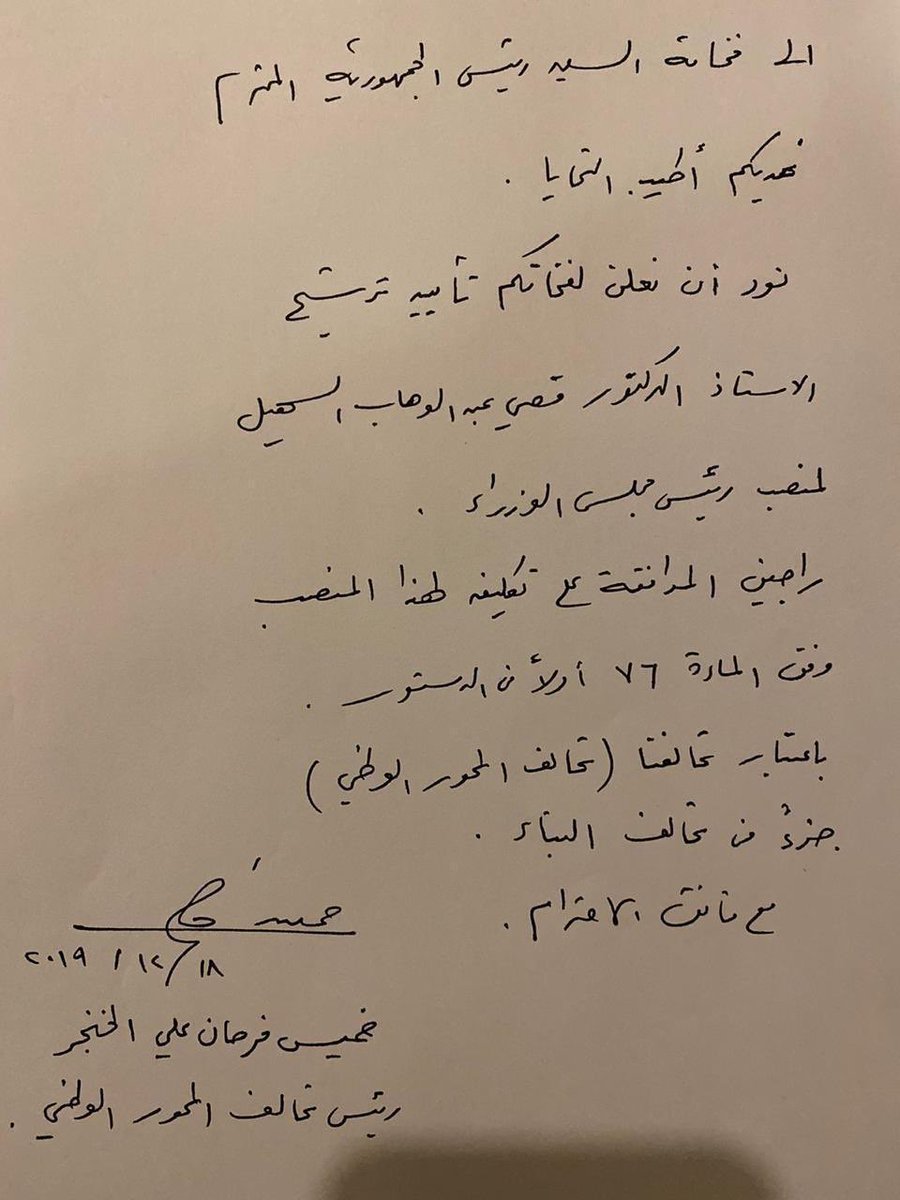 الى فخامة السيد رئيس الجمهورية المحترم
نهديكم أطيب التحايا .
نود أن نعلن لفخامتكم تأييد ترشيح
الاستاذ الدكتور قصي عبد الوهاب السهيل
لمنصب رئيس مجلس الوزراء .
راجين الموافقة على تكليفه لهذا المنصب
وفق المادة ٧٦ أولاً من الدستور .
باعتبار تحالفنا (تحالف المحور الوطني)
جزءٌ من تحالف البناء .
مع فائق الاحترام .
٢٠١٩ / ١٢ / ١٨
خميس فرحان علي الخنجر
رئيس تحالف المحور الوطني .